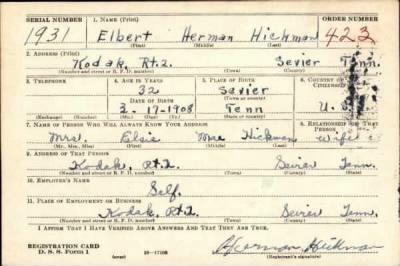 SERIAL NUMBER 1. NAME (Print) ORDER NUMBER
1931 Elbert Herman Hickman 423
(First) (Middle) (Last)
2. ADDRESS (Print)
Kodak, Rt. 2. Sevier Tenn.
(Number and street or R. F. D. number) (Town) (County) (State)
3. TELEPHONE 4. AGE IN YEARS 5. PLACE OF BIRTH 6. COUNTRY OF CITIZENSHIP
32 Sevier
DATE OF BIRTH (Town or county)
3-17-1908 Tenn U.S.
(Exchange) (Number) (Mo.) (Day) (Yr.) (State or country)
7. NAME OF PERSON WHO WILL ALWAYS KNOW YOUR ADDRESS 8. RELATIONSHIP OF THAT PERSON
Mrs. Elsie Mae Hickman wife
(Mr., Mrs., Miss) (First) (Middle) (Last)
9. ADDRESS OF THAT PERSON
Kodak, Rt. 2 Sevier Tenn.
(Number and street or R. F. D. number) (Town) (County) (State)
10. EMPLOYER'S NAME
Self.
11. PLACE OF EMPLOYMENT OR BUSINESS
Kodak, Rt. 2 Sevier Tenn.
(Number and street or R. F. D. number) (Town) (County) (State)
I AFFIRM THAT I HAVE VERIFIED ABOVE ANSWERS AND THAT THEY ARE TRUE.
REGISTRATION CARD
D. S. S. Form 1 Herman Hickman
(over) (Registrant's signature)